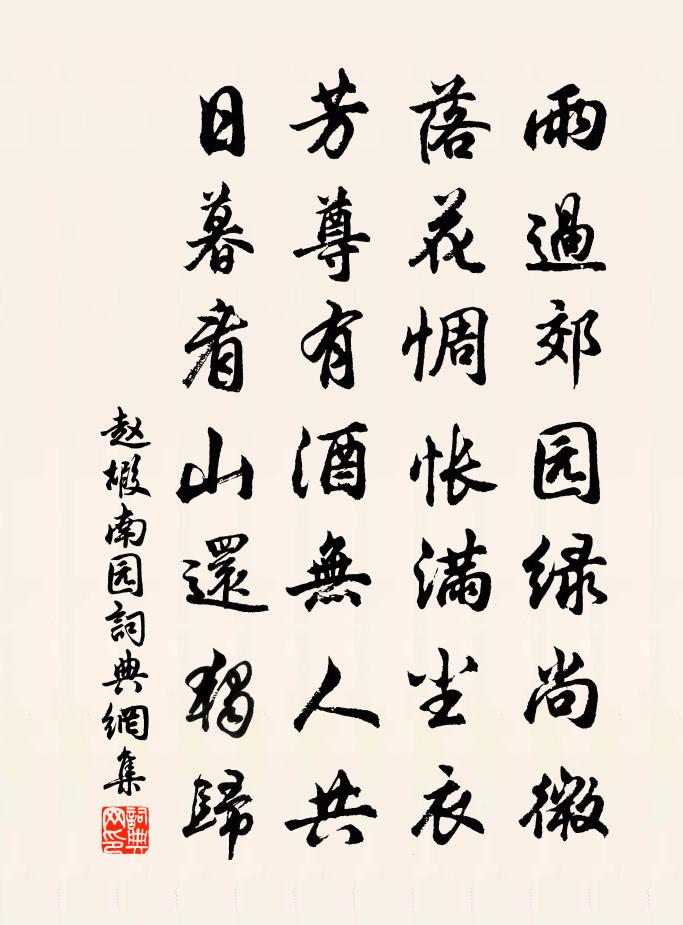 雨過郊园绿尚微
落花惆怅满尘衣
芳尊有酒無人共
日暮看山還獨歸
赵嘏南园詞典網集
詞典网印